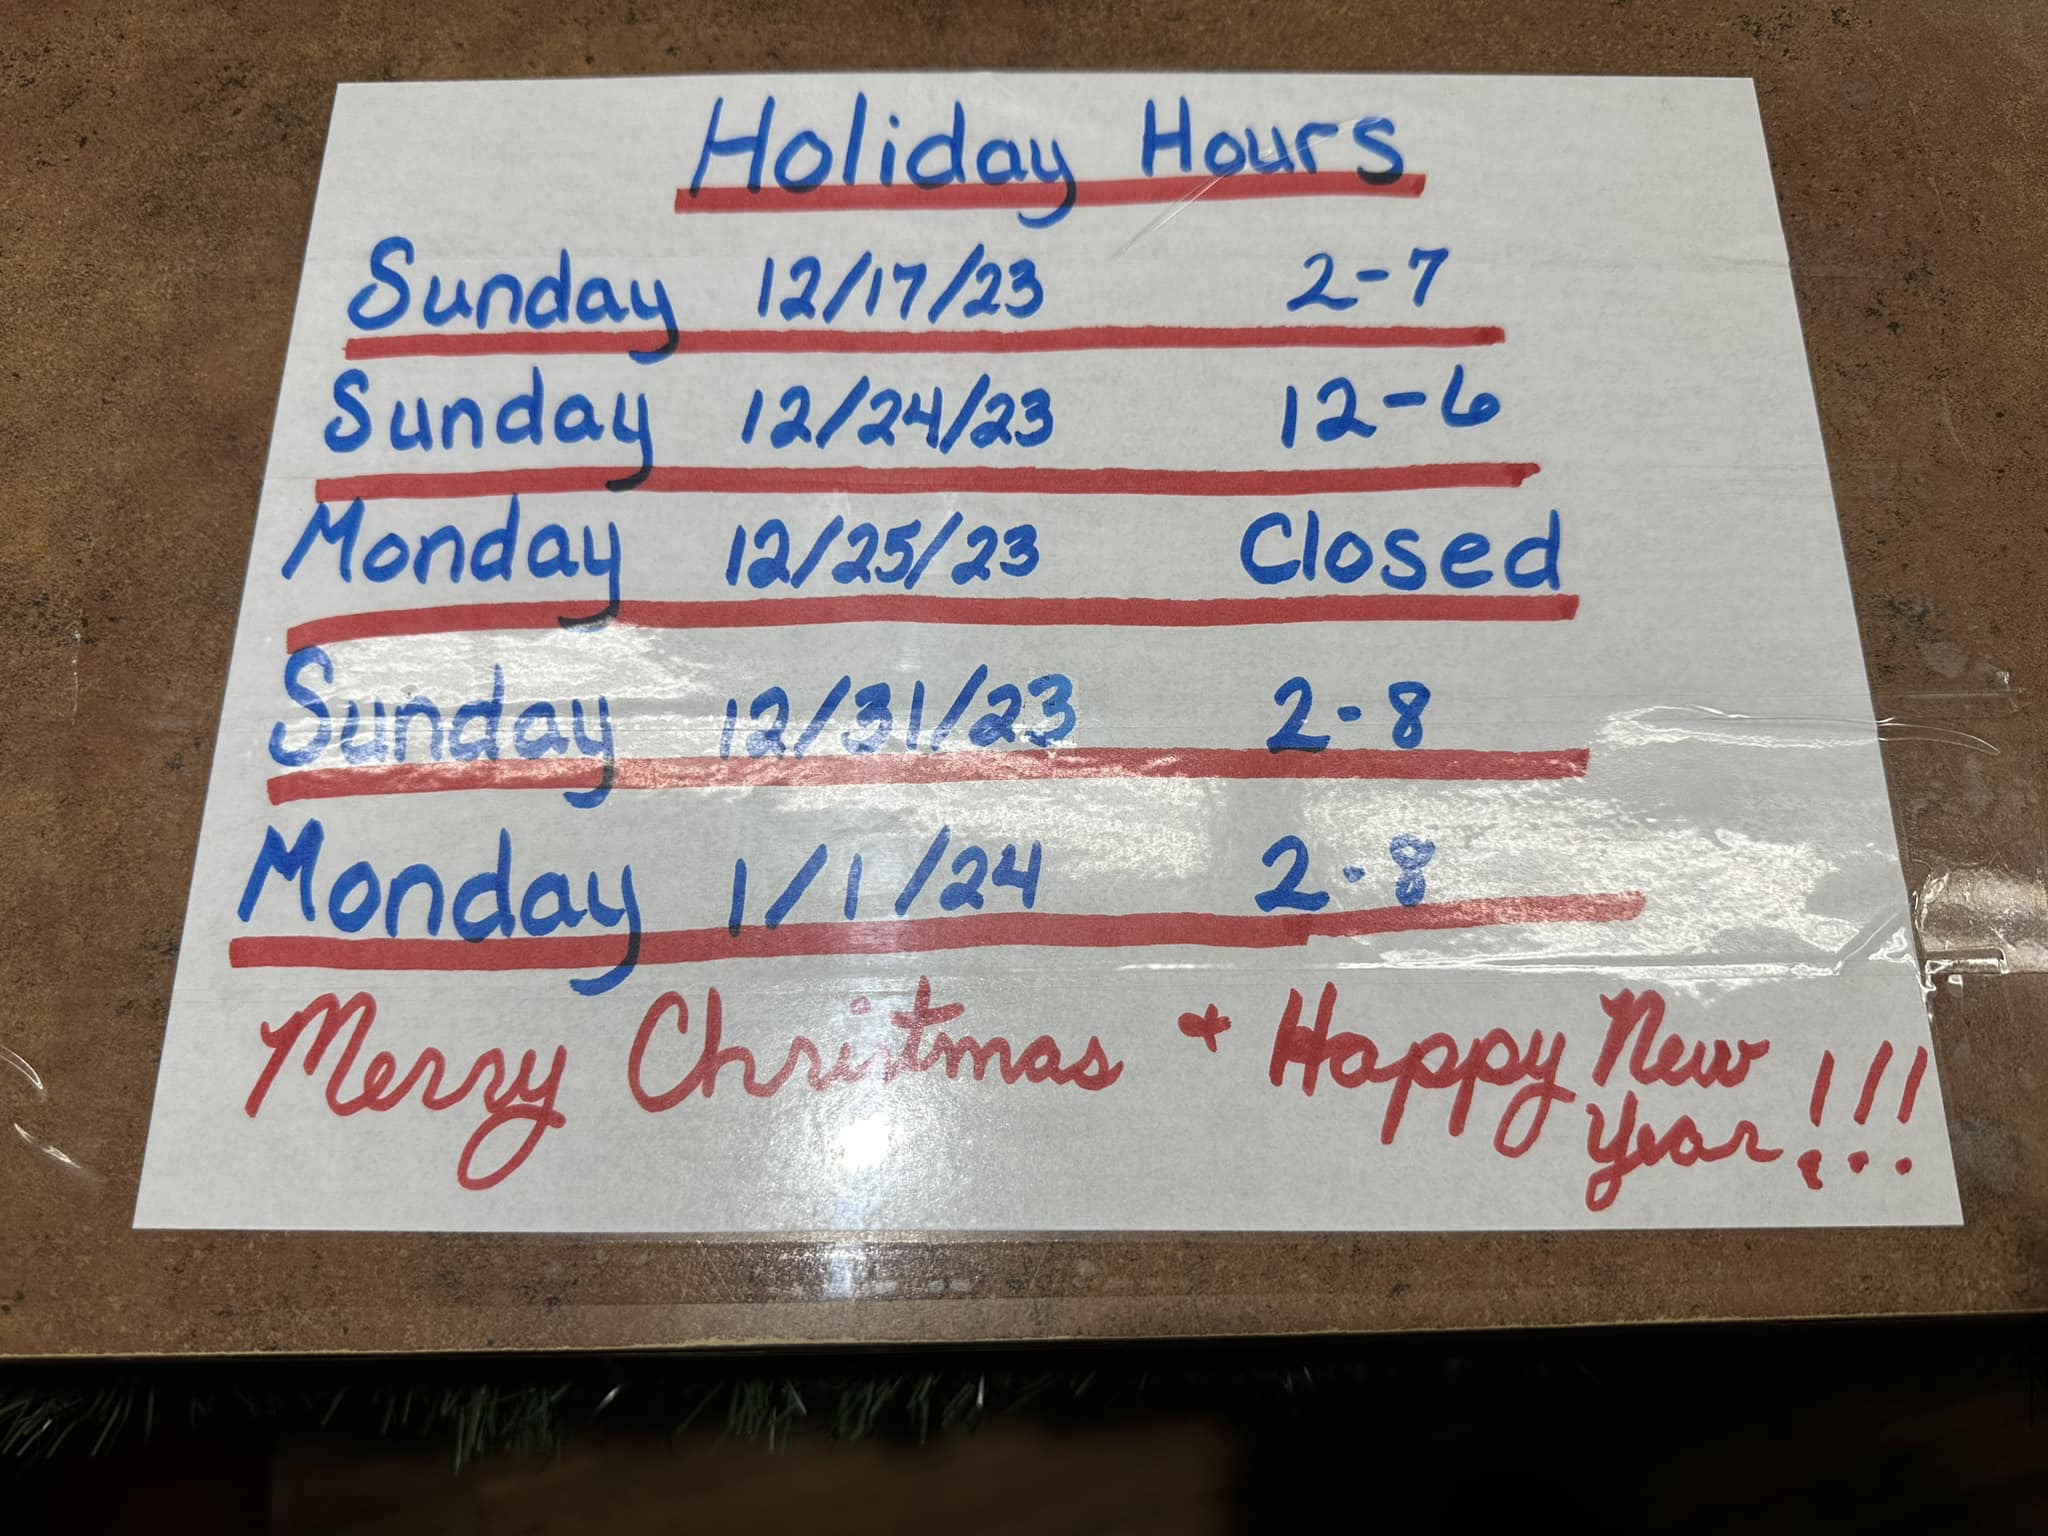 Holiday Hours
Sunday 12/17/23 2-7
Sunday 12/24/23 12-6
Monday 12/25/23 Closed
Sunday 12/31/23 2-8
Monday 1/1/24 2-8
Merry Christmas + Happy New
Year!!!